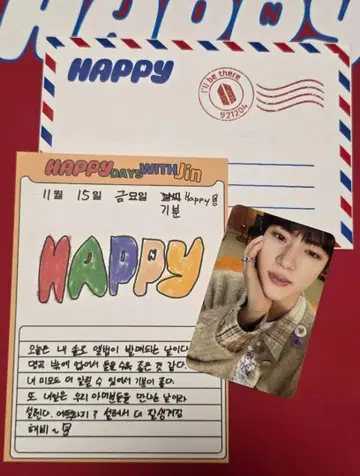 HAPPY
HAPPY
I'll be there
921204
HAPPY DAYS WITH Jin
11월 15일 금요일 날씨 Happy
기분
HAPPY
오늘은 내 솔로 앨범이 발매되는 날이다
명곡 밖에 없어서 들을수록 좋은 것 같다.
내 미모도 더 알릴 수 있어서 기분이 좋다.
또 내일은 우리 아미분들을 만나는 날이라
설렌다. 어떡하지? 설레서 더 잘생겨짐
해삐~